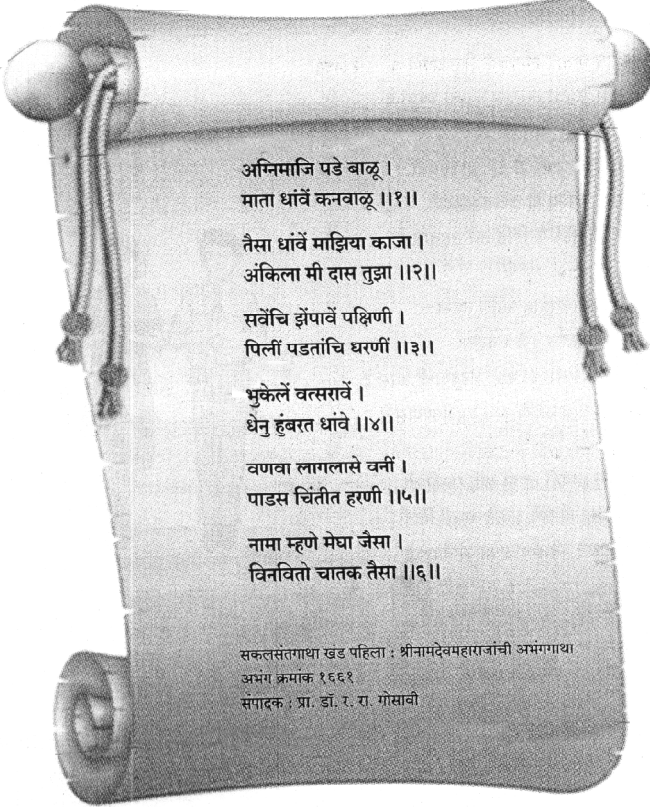 अग्निमाजि पडे बाळू ।
माता धांवें कनवाळू ॥१॥
तैसा धांवें माझिया काजा ।
अंकिला मी दास तुझा ॥२॥
सवेंचि झेंपावें पक्षिणी ।
पिलीं पडतांचि धरणीं ॥३॥
भुकेलें वत्सरावें ।
धेनु हुंबरत धांवे ॥४॥
वणवा लागलासे वनीं ।
पाडस चिंतीत हरणी ॥५॥
नामा म्हणे मेघा जैसा ।
विनवितो चातक तैसा ॥६॥
सकलसंतगाथा खंड पहिला : श्रीनामदेवमहाराजांची अभंगगाथा
अभंग क्रमांक १६६१
संपादक : प्रा. डॉ. र. रा. गोसावी